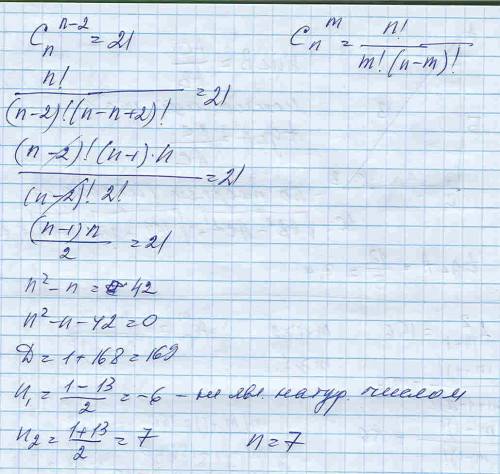 C_n^{n-2} = 21
C_n^m = n! / m!(n-m)!
n! / (n-2)!(n-n+2)! = 21
(n-2)!(n-1)·n / (n-2)! 2! = 21
(n-1)·n / 2 = 21
n² - n = 42
n² - n - 42 = 0
D = 1 + 168 = 169
n₁ = (1-13) / 2 = -6 - не явл. натур. числом
n₂ = (1+13) / 2 = 7 n = 7